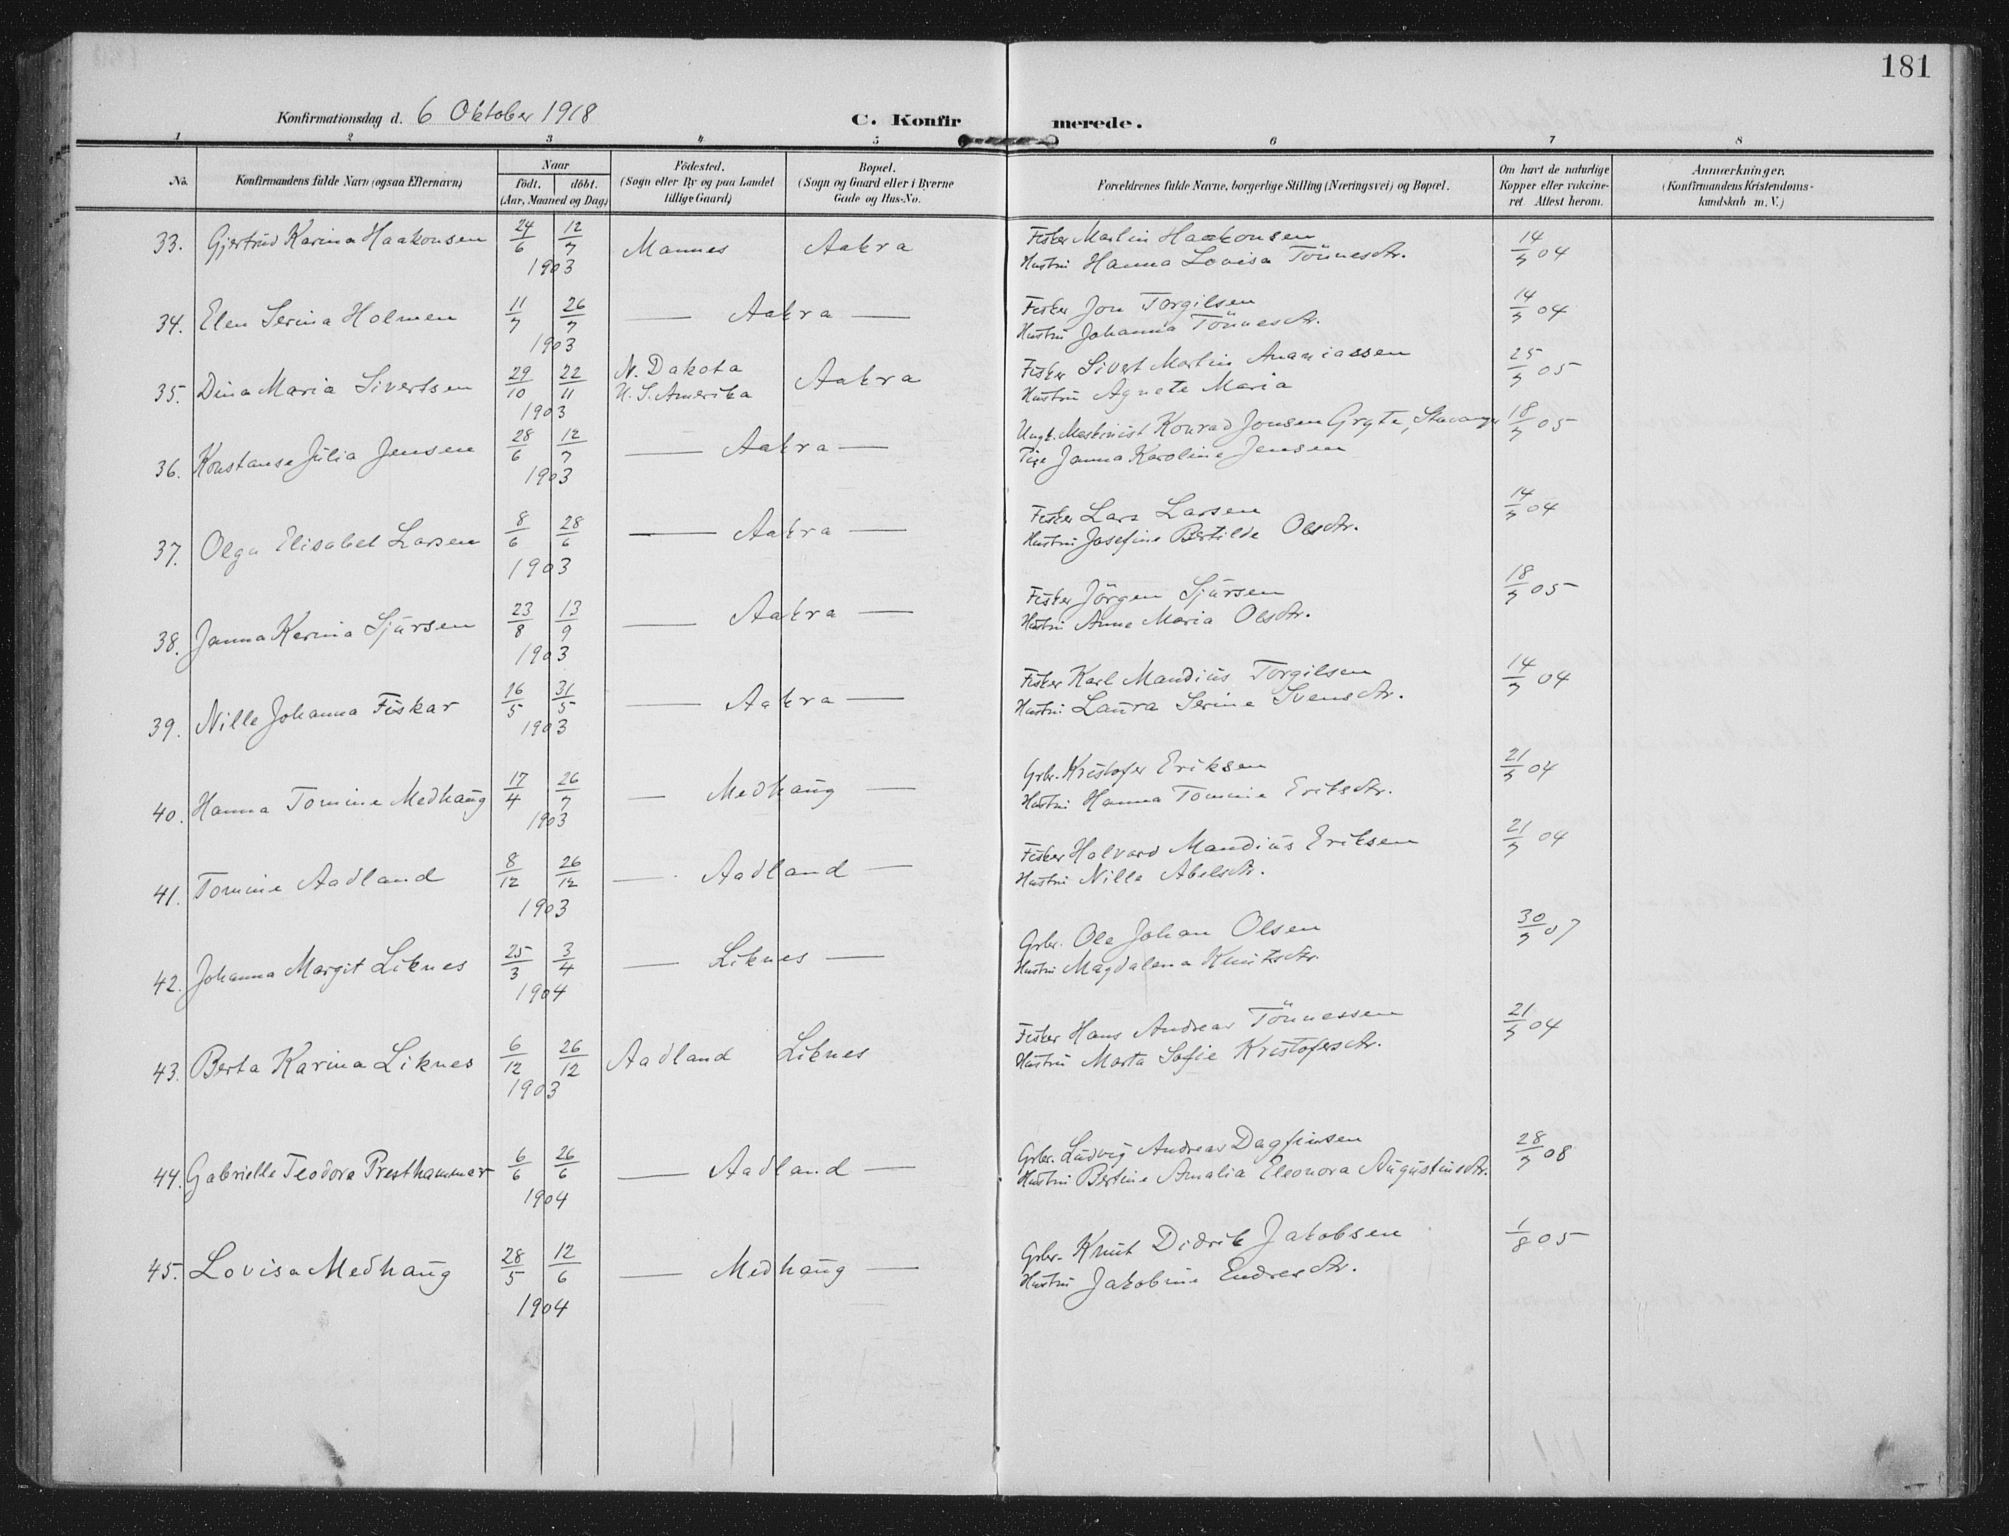 181
Konfirmationsdag d. 6 Oktober 1918
C. Konfirmerede.
1 2 3 4 5 6 7 8
No. Konfirmandens fulde Navn (ogsaa Efternavn) Naar født. døbt. (Aar, Maaned og Dag) Fødested. (Sogn eller By og paa Landet tillige Gaard) Bopæl. (Sogn og Gaard eller i Byerne Gade og Hus-No. Forældrenes fulde Navne, borgerlige Stilling (Næringsvei) og Bopæl. Om havt de naturlige Kopper eller vakcineret. Attest herom. Anmærkninger. (Konfirmandens Kristendomskundskab m. V.)
33. Gjertrud Karina Haakonsen 24/6 12/7 1903 Mannes Aakra Fisker Martin Haakonsen 14/7 04
Hustru Hanna Lovisa Tönnesdtr.
34. Elen Serina Holmen 11/7 26/7 1903 — Aakra — Fisker Jon Torgilsen 14/7 04
Hustru Johanna Tönnesdtr.
35. Dina Maria Sivertsen 29/10 22/11 1903 N. Dakota U. S. Amerika Aakra Fisker Sivert Martin Ananiassen 25/7 05
Hustru Agnete Maria
36. Konstanse Julia Jensen 28/6 12/7 1903 — Aakra — Ungk. Maskinist Konrad Jonsen Gryte, Stavanger 18/7 05
Pige Janna Karoline Jensen
37. Olga Elisabet Larsen 8/6 28/6 1903 — Aakra — Fisker Lars Larsen 14/7 04
Hustru Josefine Bertilde Olsdtr.
38. Janna Karina Sjursen 23/8 13/9 1903 — Aakra — Fisker Jörgen Sjursen 18/7 05
Hustru Anne Maria Olsdtr.
39. Nille Johanna Fiskar 16/5 31/5 1903 — Aakra — Fisker Karl Mandius Torgilsen 14/7 04
Hustru Laura Serine Svensdtr.
40. Hanna Tomine Medhaug 17/4 26/7 1903 — Medhaug — Grbr. Kristofer Eriksen 21/7 04
Hustru Hanna Tomine Eriksdtr.
41. Tomine Aadland 8/12 26/12 1903 — Aadland — Fisker Halvard Mandius Eriksen 21/7 04
Hustru Nille Abelsdtr.
42. Johanna Margit Liknes 25/3 3/4 1904 — Liknes — Grbr. Ole Johan Olsen 30/7 07
Hustru Magdalena Knutsdtr.
43. Berta Karina Liknes 6/12 26/12 1903 Aadland Liknes Fisker Hans Andreas Tönnessen 21/7 04
Hustru Marta Sofie Kristofersdtr.
44. Gabrielle Teodora Presthammer 6/6 26/6 1904 — Aadland — Grbr. Ludvig Andreas Dagfinsen 28/7 08
Hustru Bertine Amalia Eleonora Augustinsdtr.
45. Lovisa Medhaug 28/5 12/6 1904 — Medhaug — Grbr. Knut Didrik Jakobsen 1/8 05
Hustru Jakobine Endresdtr.